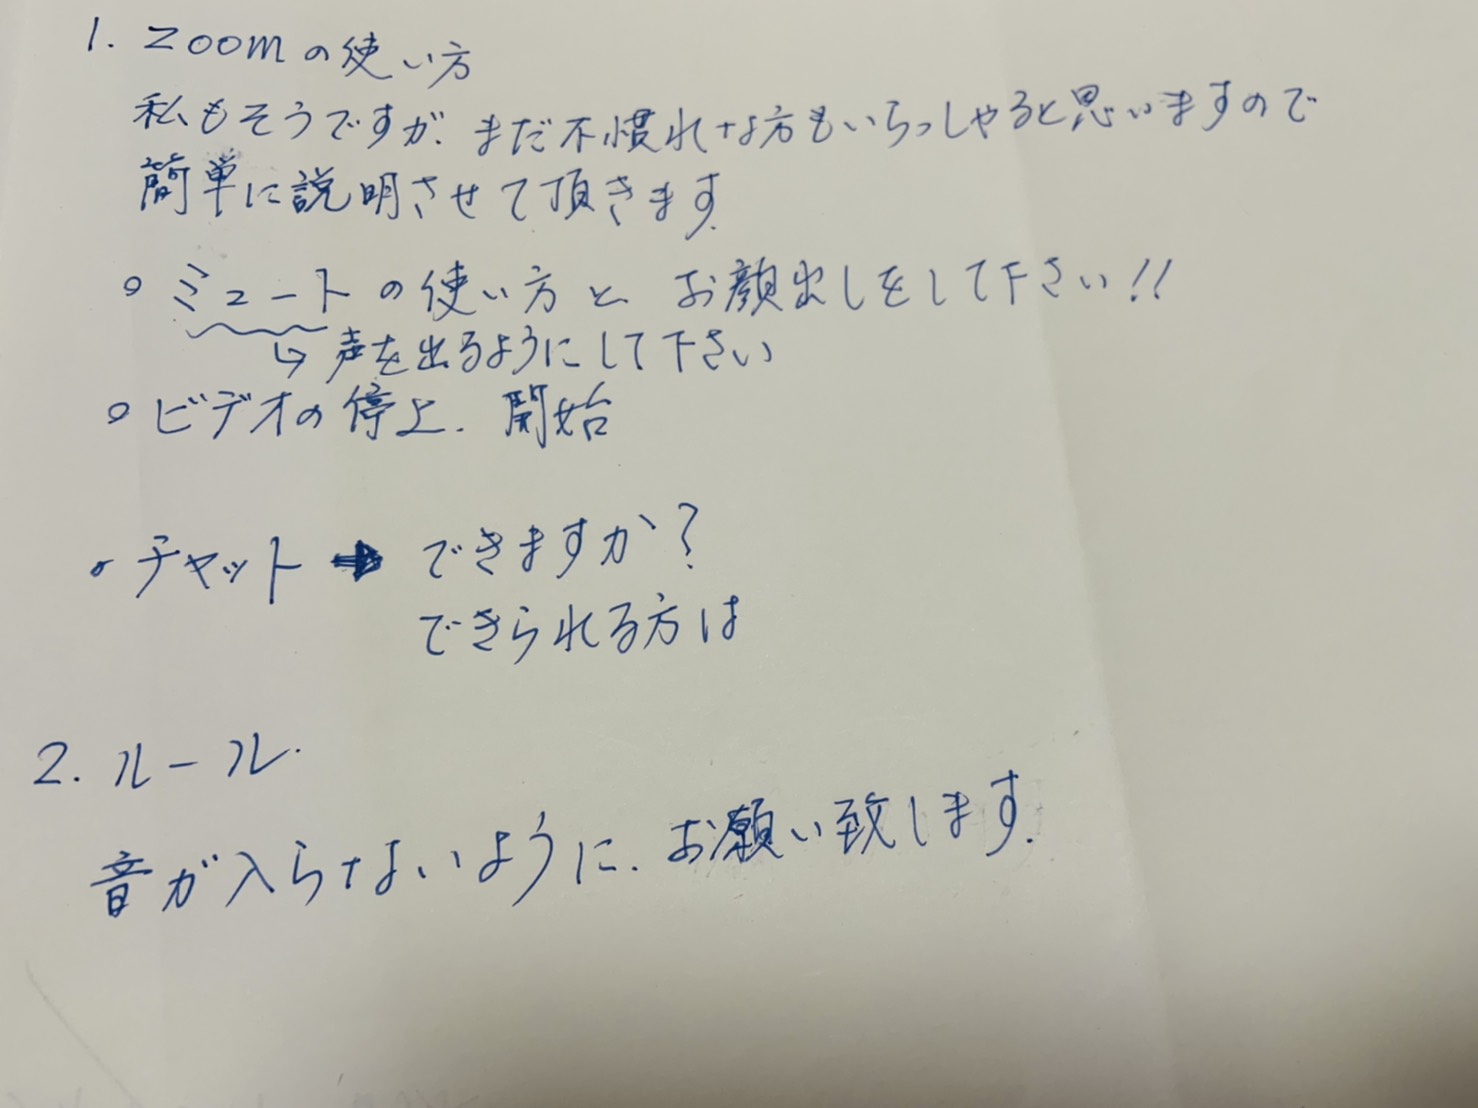 1. Zoomの使い方
私もそうですが、まだ不慣れな方もいらっしゃると思いますので
簡単に説明させて頂きます。
○ ミュートの使い方と、お顔出しをして下さい!!
↳ 声を出るようにして下さい
○ ビデオの停止、開始
○ チャット ➡ できますか？
できられる方は
2. ルール.
音が入らないように、お願い致します.